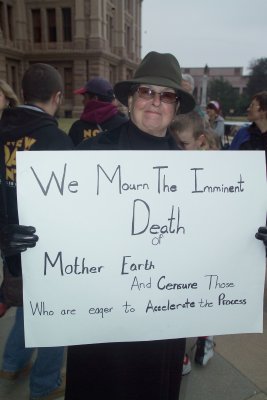 We Mourn The Imminent
Death
of
Mother Earth
And Censure Those
Who are eager to Accelerate the Process